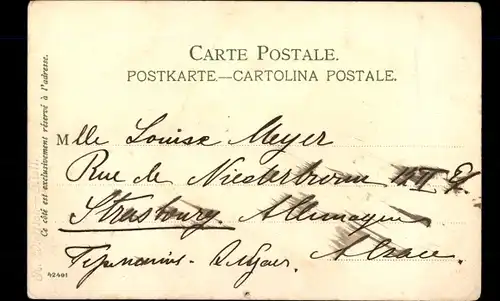 CARTE POSTALE.
POSTKARTE.—CARTOLINA POSTALE.
Ce côté est exclusivement réservé à l'adresse.
Mlle Louise Meyer
Rue de Niederbronn
Strasbourg. Allemagne
Alsace.
42401